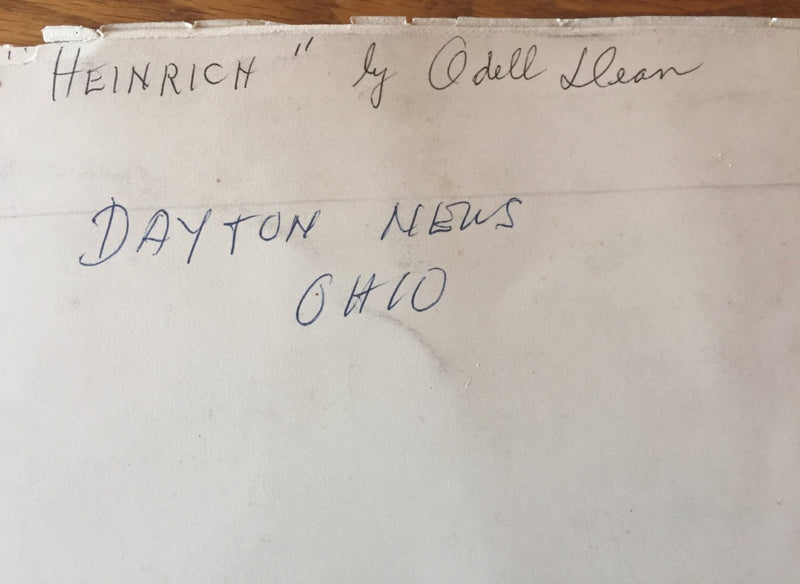 "HEINRICH" by Odell Dean
DAYTON NEWS
OHIO